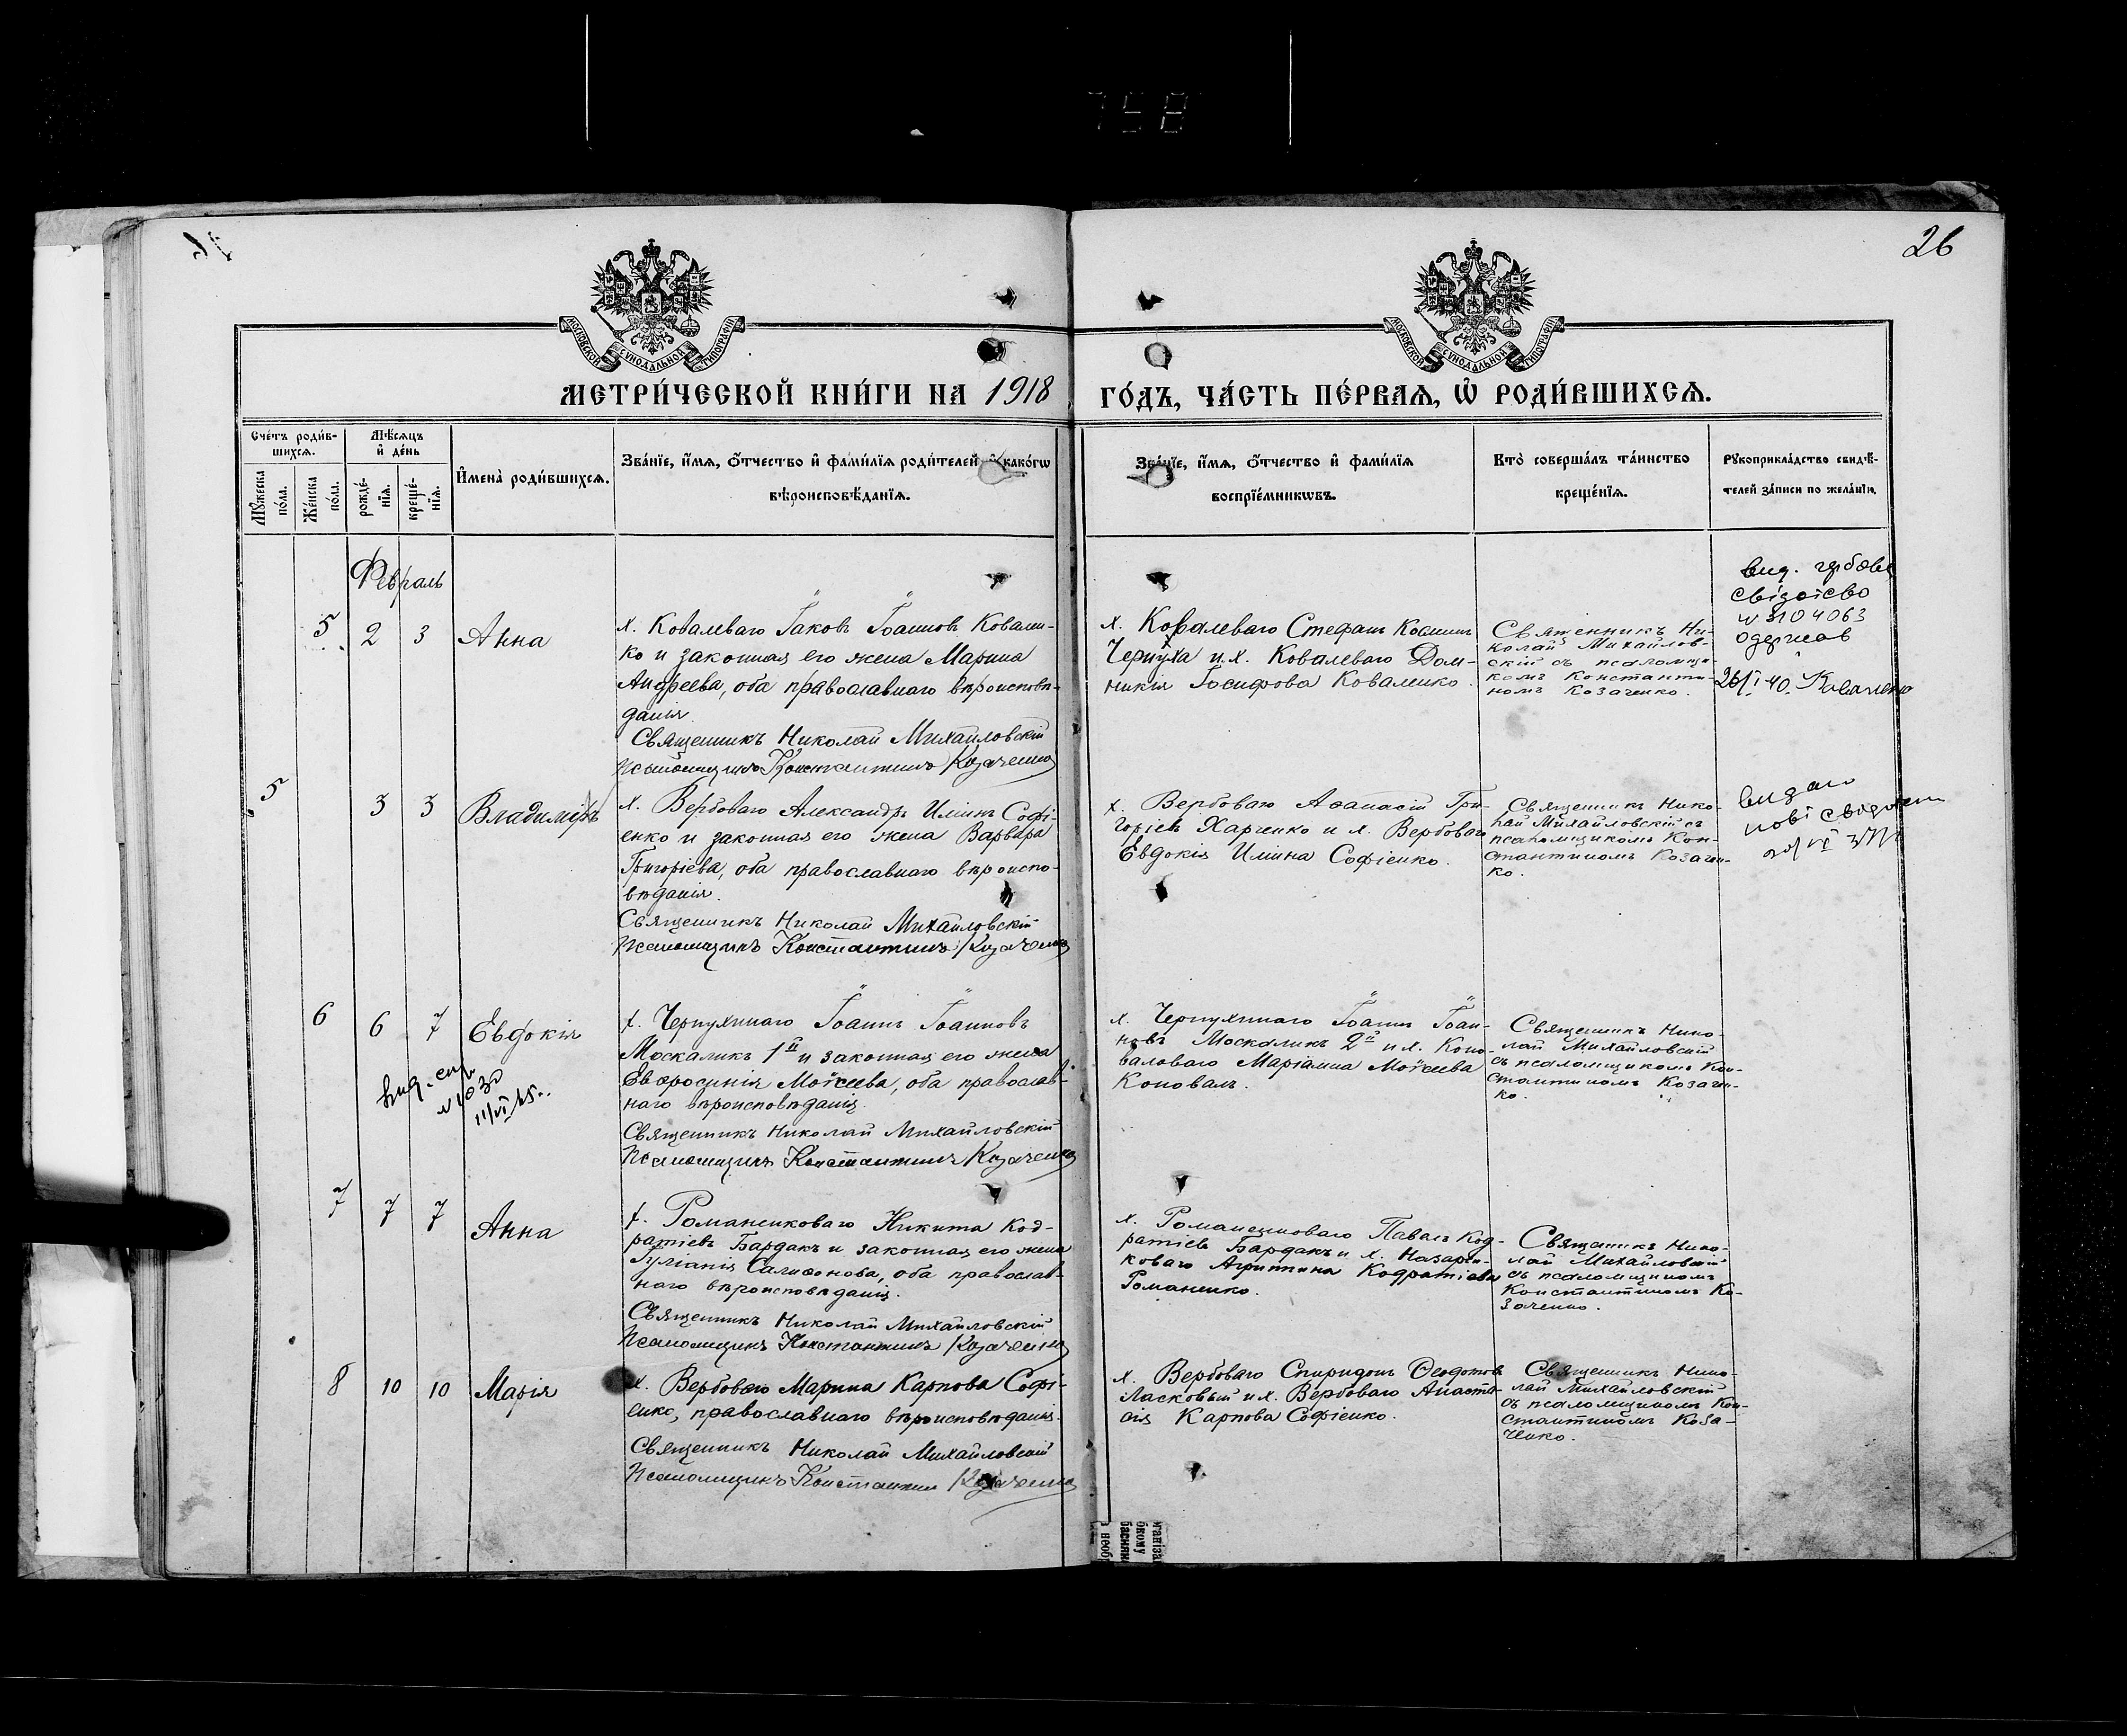 758
26
МОСКОВСКОЙ СУНОДАЛЬНОЙ ТИПОГРАФІИ
МОСКОВСКОЙ СУНОДАЛЬНОЙ ТИПОГРАФІИ
МЕТРИ́ЧЕСКОЙ КНИ́ГИ НА 1918 ГО́ДЪ, ЧА́СТЬ ПЕ́РВАѦ, Ѡ҆ РОДИ́ВШИХСѦ.
Сче́тъ роди́в-
шихсѧ.
Мꙋ́жеска по́ла.
Же́нска по́ла.
Мѣ́сѧцъ
и҆ де́нь
рожде́-
нїѧ.
креще́-
нїѧ.
И҆мена̀ роди́вшихсѧ.
Зва́нїе, и҆́мѧ, ѻ҆́тчество и҆ фами́лїѧ роди́телей и҆ како́гѡ
вѣроисповѣ́данїѧ.
Зва́нїе, и҆́мѧ, ѻ҆́тчество и҆ фами́лїѧ
воспрїе́мникѡвъ.
Кто̀ соверша́лъ та́инство
креще́нїѧ.
Рꙋкоприкла́дство свидѣ́-
телей за́писи по жела́нїю.
Февраль
5 2 3 Анна
х. Ковалеваго Іаковъ Іоанновъ Ковален-
ко и законная его жена Марина
Андреева, оба православнаго вѣроисповѣ-
данія.
Священникъ Николай Михайловскій
Псаломщикъ Константинъ Козаченко
х. Ковалеваго Стефанъ Косминъ
Чернуха и х. Ковалеваго Дом-
никія Іосифова Коваленко.
Священникъ Ни-
колай Михайлов-
скій съ псаломщи-
комъ Константи-
номъ Козаченко.
вид.
одержав
26/I 40. Коваленко
5 3 3 Владиміръ
х. Вербоваго Александръ Илiинъ Софі-
енко и законная его жена Варвара
Григоріева, оба православнаго вѣроиспо-
вѣданія.
Священникъ Николай Михайловскій
Псаломщикъ Константинъ Козаченко
х. Вербоваго Аѳанасій Гри-
горіевъ Харченко и х. Вербоваго
Евдокія Иліина Софіенко.
Священникъ Нико-
лай Михайловскій съ
псаломщикомъ Кон-
стантиномъ Козачен-
ко.
видано
нові
6 6 7 Евдокія
вид.
х. Чернухинаго Іоаннъ Іоанновъ
Москаликъ 1й и законная его жена
Евфросинія Моѵсеева, оба православ-
наго вѣроисповѣданія.
Священникъ Николай Михайловскій
Псаломщикъ Константинъ Козаченко
х. Чернухинаго Іоаннъ Іоан-
новъ Москаликъ 2й и х. Коно-
валоваго Маріанна Моѵсеева
Коновалъ.
Священникъ Нико-
лай Михайловскій
съ псаломщикомъ Кон-
стантиномъ Козачен-
ко.
7 7 7 Анна
х. Романенковаго Никита Код-
ратіевъ Бардакъ и законная его жена
Іуліанія Сампсонова, оба православ-
наго вѣроисповѣданія.
Священникъ Николай Михайловскій
Псаломщикъ Константинъ Козаченко
х. Романенковаго Павелъ Код-
ратіевъ Бардакъ и х. Назарен-
коваго Агриппина Кодратіева
Романенко.
Священникъ Нико-
лай Михайловскій
съ псаломщикомъ
Константиномъ Ко-
заченко.
8 10 10 Марія
х. Вербоваго Марина Карпова Софі-
енко, православнаго вѣроисповѣданія.
Священникъ Николай Михайловскій
Псаломщикъ Константинъ Козаченко
х. Вербоваго Спиридонъ Ѳеодотовъ
Ласковый и х. Вербоваго Анаста-
сія Карпова Софіенко.
Священникъ Нико-
лай Михайловскій
съ псаломщикомъ Кон-
стантиномъ Коза-
ченко.